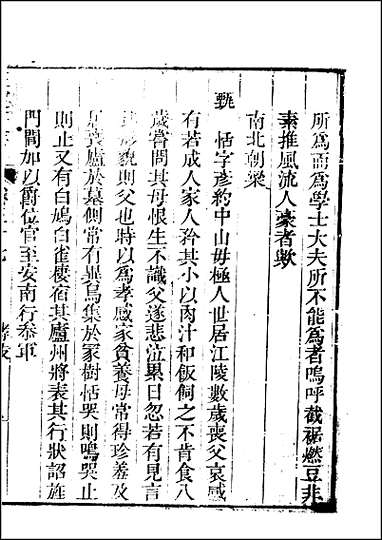 所爲而爲學士大夫所不能爲者嗚呼截裾燃豆非
素推風流人豪者歟
南北朝梁
甄恬字彥約中山毋極人世居江陵數歲喪父哀感
有若成人家人矜其小以肉汁和飯飼之不肯食八
歲嘗問其母恨生不識父遂悲泣累日忽若有見言
形貌則父也時以爲孝感家貧養母常得珍羞及
居喪廬於墓側常有異鳥集於冢樹恬哭則鳴哭止
則止又有白鳩白雀棲宿其廬州將表其行狀詔旌
門閭加以爵位官至安南行參軍